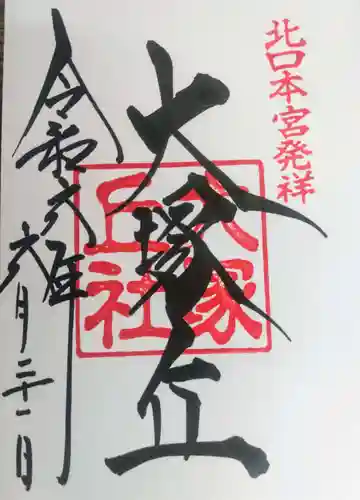 北口本宮発祥
大塚丘
大塚
丘社
令和六年
六月二十一日